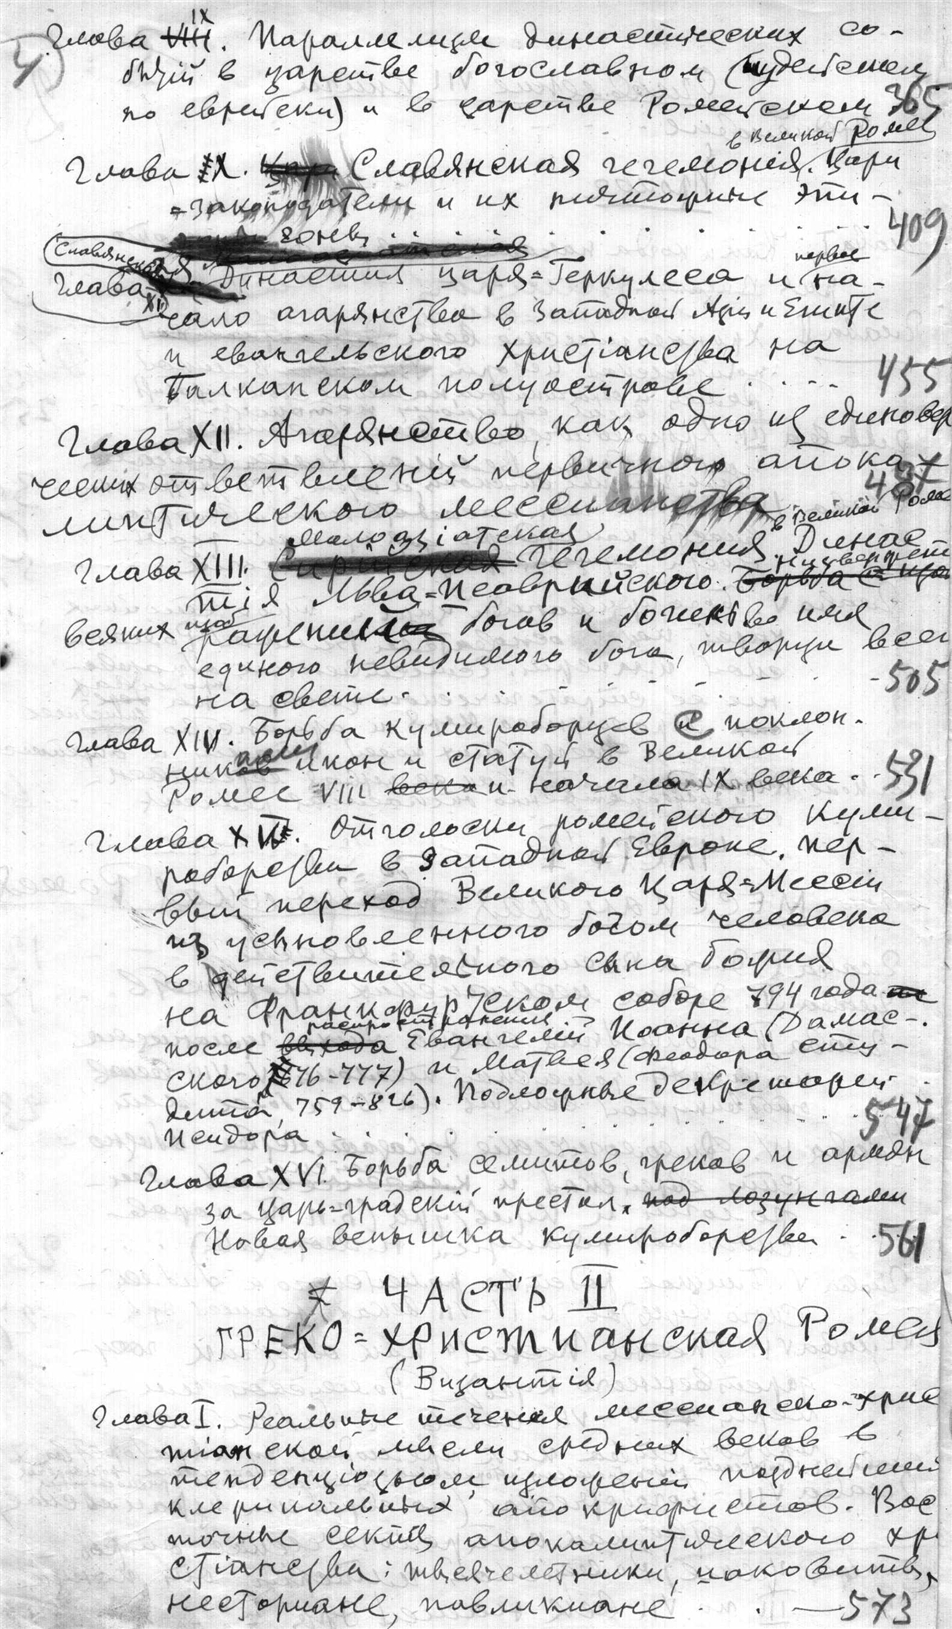 IX
Глава VIII. Параллелизм династических со-
бытій в царстве богославном (иудейском
по еврейски) и в царстве Ромейском 365
в Великой Ромее
Глава IX. Цари Славянская гегемонія. Цари
=законодатели и их эпи-
гоны 409
Славянская
первое
Глава XI Династия царя=Геркулеса и на-
чало агарянства в Западной Азіи и Египте
и евангельского христіанства на
Балканском полуострове . . . . 455
Глава XII. Агарянство, как одно из единовер
ческих ответвленій первичного апока-
487
липтического мессианства
в Великой Ромее
Малоазіатская
Глава XIII. Сирійская гегемония. Динас
тія Льва=Исаврийского. Борьба
всяких богов и божество имя
единого невидимого бога, творца всего
на свете . . . . 505
Глава XIV. Борьба кумироборцев с поклон-
никами икон и статуй в Великой
Ромее VIII века и начала IX века . . 531
Глава XV. Отголоски ромейского куми-
роборства в Западной Европе. Пер-
вый переход Великого Царя=Мессіи
из усыновленного богом человека
в действительного сына божия
на Франкфуртском соборе 794 года
распространения
после выхода Евангелій Иоанна (Дамас-
ского 676-777) и Матвея (Феодора Сту-
дита 759-826). Подложные декреталии
Исидора . . . . 547
Глава XVI. Борьба семитов, греков и армян
за царь=градскій престол. под лозунгами
Новая вспышка кумироборства . 561
ЧАСТЬ II
ГРЕКО=ХРИСТИАНСКАЯ РОМЕЯ
(Византія)
Глава I. Реальные течения мессианско-хрис
тианской мысли средних веков в
тенденціозном изложеніи позднейших
клерикальных апокрифистов. Вос
точные секты апокалиптического хри
стіанства: тысячелетники, иаковиты,
несториане, павликиане . . — 573